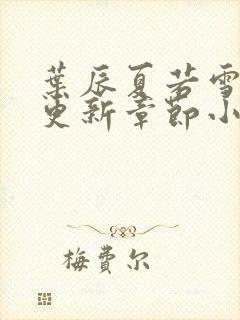 葉辰夏若雪
更新章節小
梅費尔